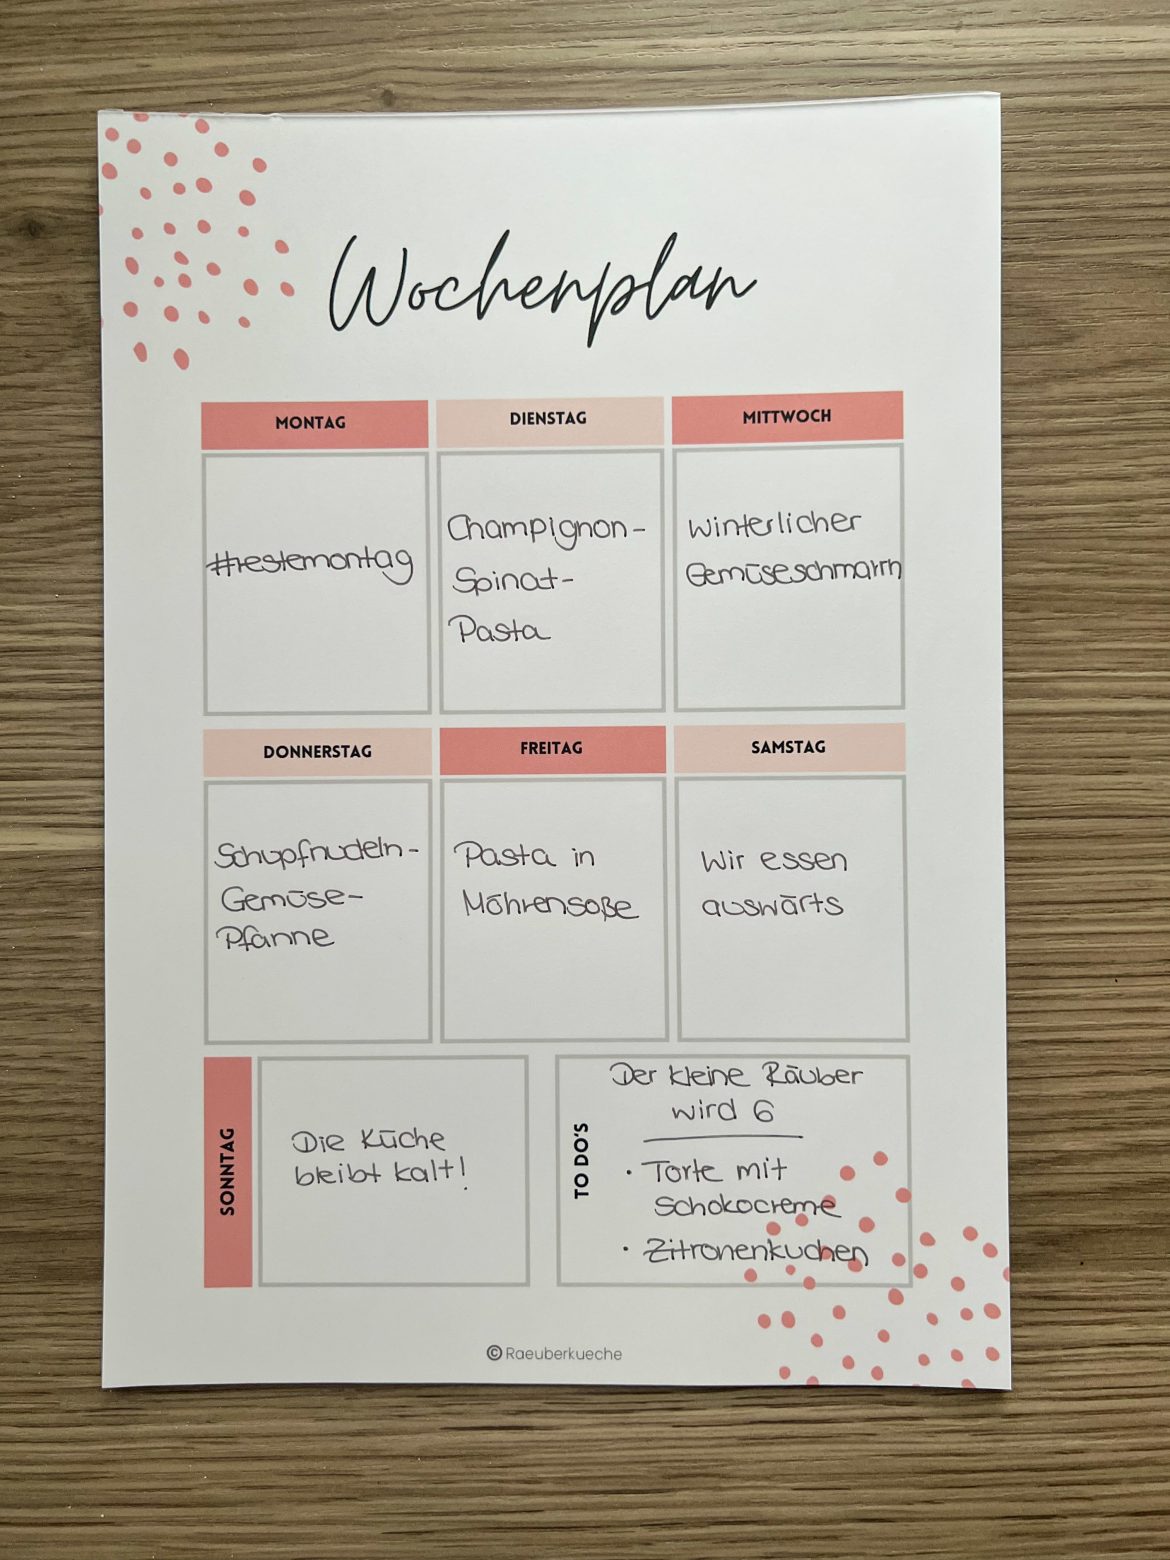 Wochenplan
MONTAG
#restemontag
DIENSTAG
Champignon-
Spinat-
Pasta
MITTWOCH
Winterlicher
Gemüseschmarrn
DONNERSTAG
Schupfnudeln-
Gemüse-
Pfanne
FREITAG
Pasta in
Möhrensoße
SAMSTAG
Wir essen
auswärts
SONNTAG
Die Küche
bleibt kalt!
TO DO'S
Der kleine Räuber
wird 6
• Torte mit
Schokocreme
• Zitronenkuchen
© Raeuberkueche